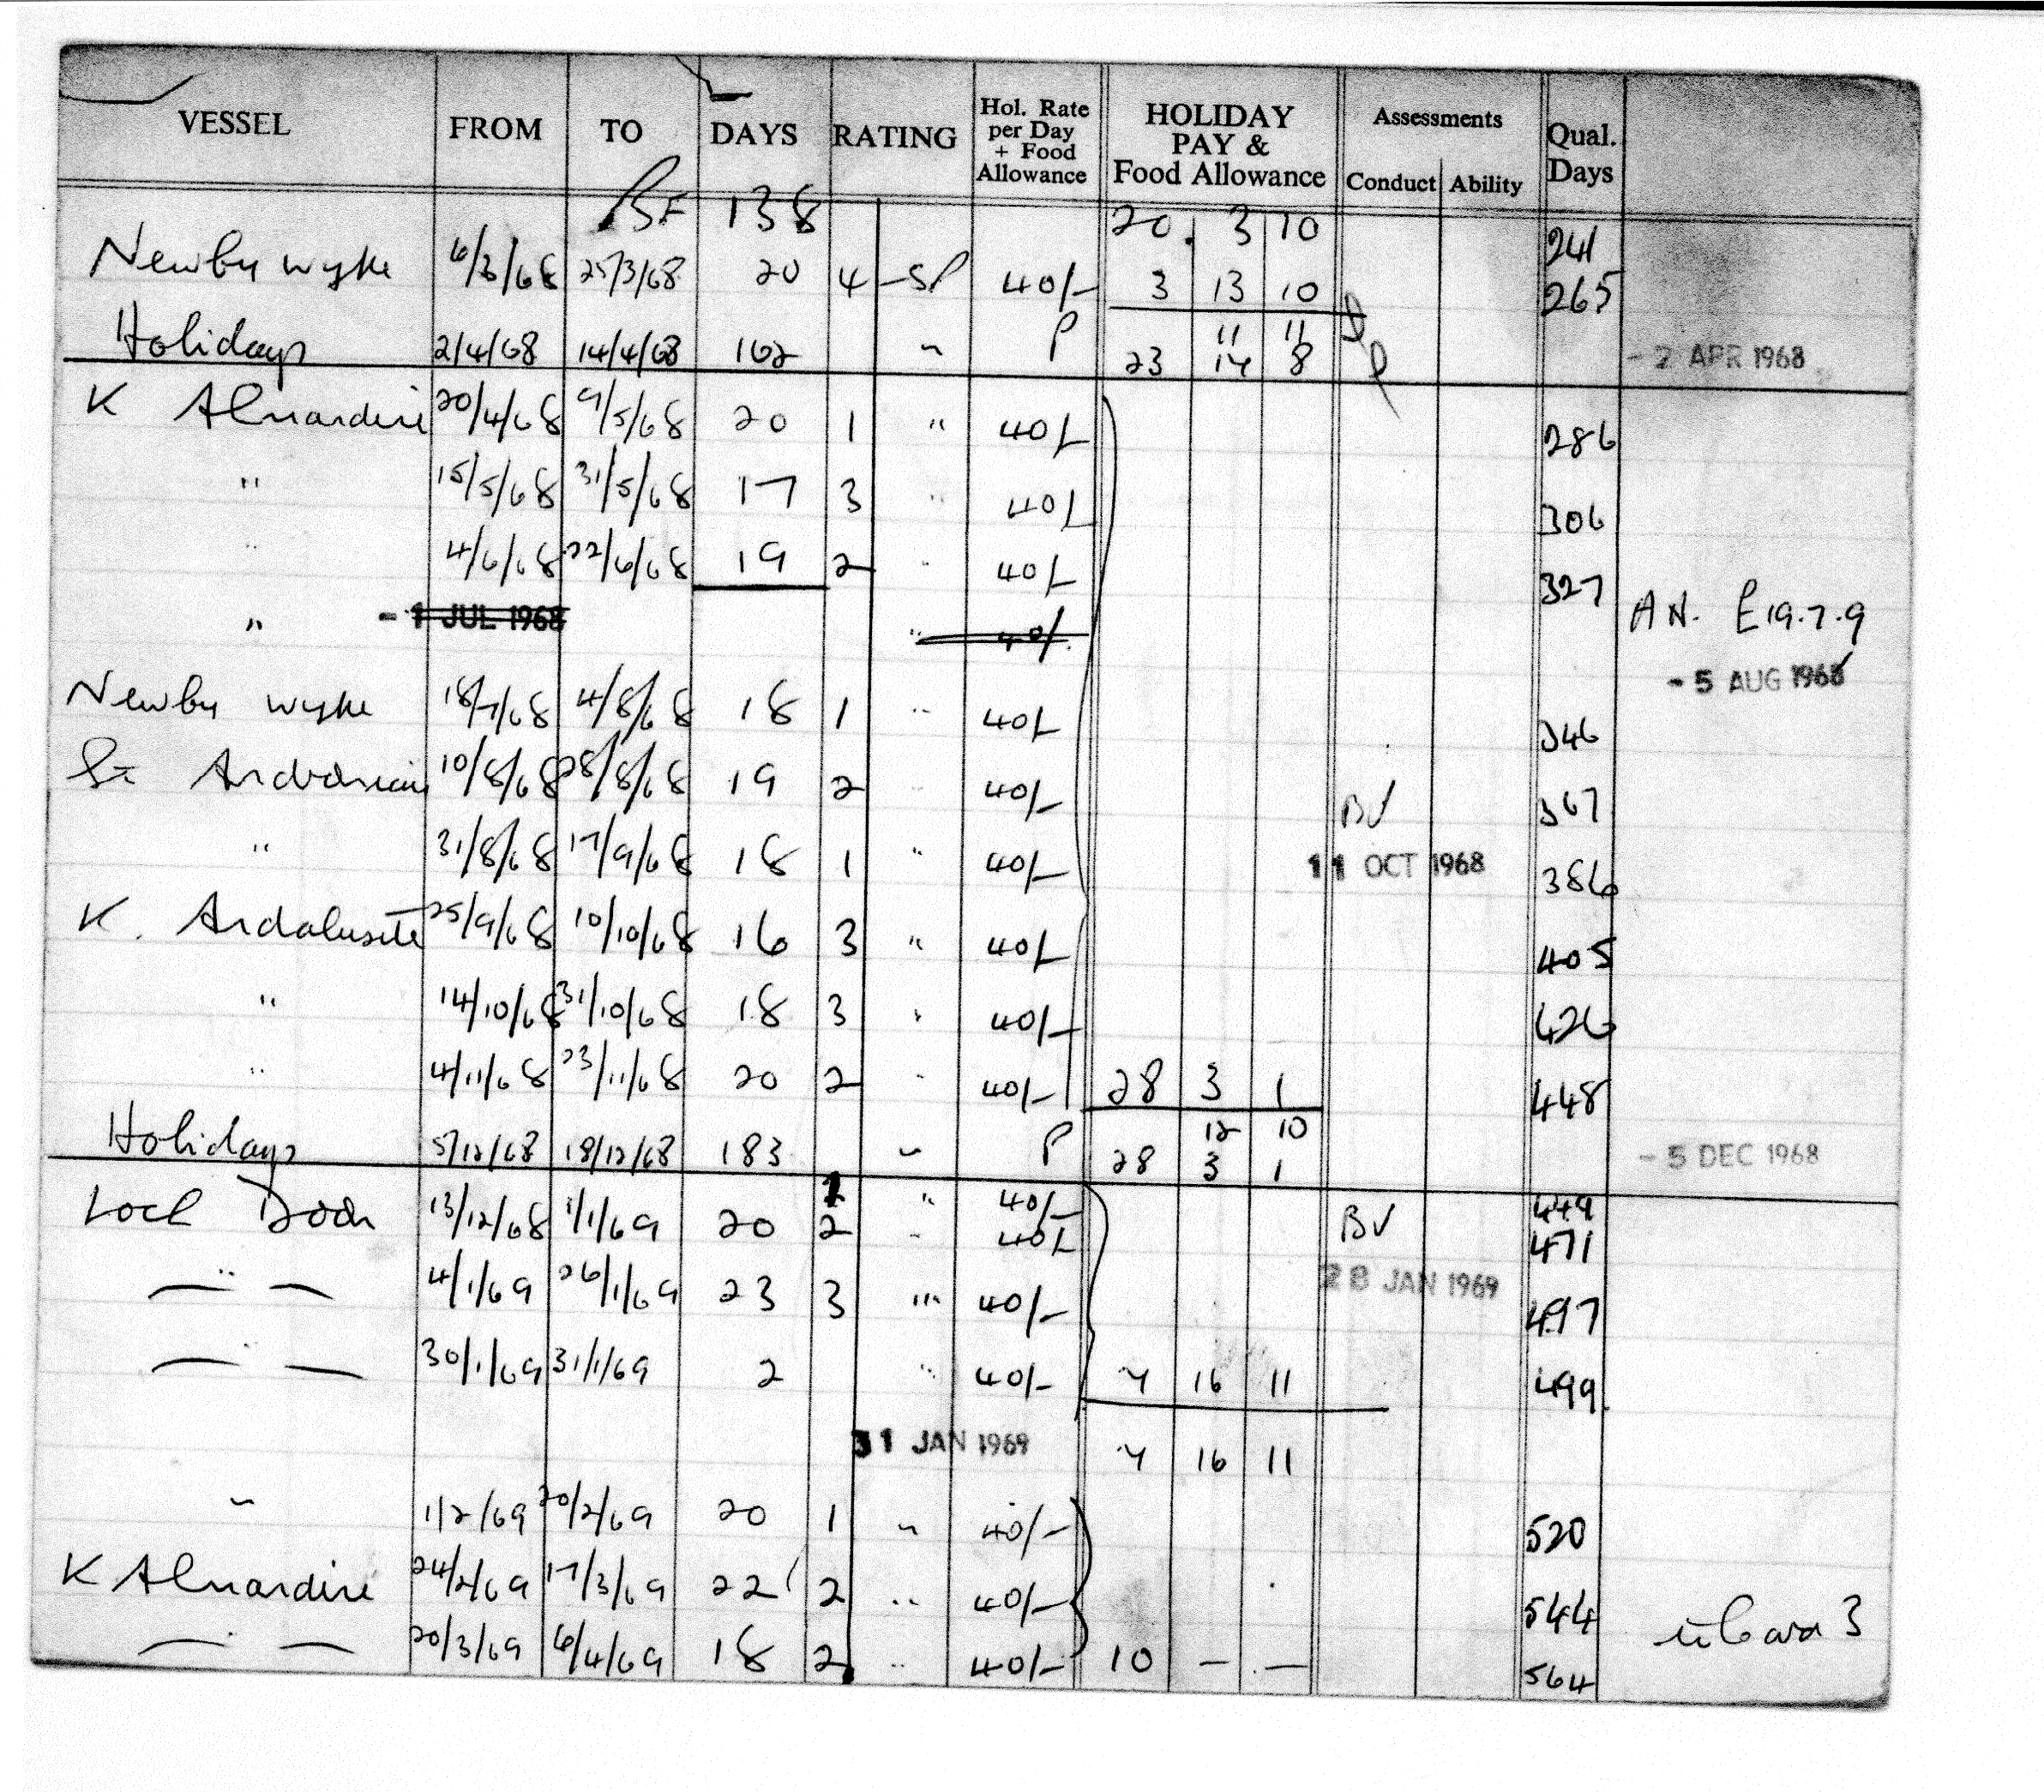 VESSEL FROM TO DAYS RATING Hol. Rate per Day + Food Allowance HOLIDAY PAY & Food Allowance Assessments Conduct Ability Qual. Days
BF 138 20. 3 10 241
Newby Wyke 6/3/68 25/3/68 20 4 SP 40/- 3 13 10 265
11 11
Holidays 2/4/68 14/4/68 162 " P 23 14 8 - 2 APR 1968
K Almandine 20/4/68 9/5/68 20 1 " 40/- 286
" 15/5/68 31/5/68 17 3 " 40/- 306
" 4/6/68 22/6/68 19 2 " 40/- 327
" - 1 JUL 1968 " 40/- AN. E19.7.9
- 5 AUG 1968
Newby Wyke 18/7/68 4/8/68 18 1 " 40/- 346
St 10/8/68 28/8/68 19 2 " 40/- BV 367
" 31/8/68 17/9/68 18 1 " 40/- 11 OCT 1968 386
K. Andalusite 25/9/68 10/10/68 16 3 " 40/- 405
" 14/10/68 31/10/68 18 3 " 40/- 426
" 4/11/68 23/11/68 20 2 " 40/- 28 3 1 448
12 10
Holidays 5/12/68 18/12/68 183 " P 28 3 1 - 5 DEC 1968
" 40/- 449
Loch Doon 13/12/68 1/1/69 20 2 " 40/- BV 471
—"— 4/1/69 26/1/69 23 3 " 40/- 28 JAN 1969 497
—"— 30/1/69 31/1/69 2 " 40/- 7 16 11 499
31 JAN 1969 7 16 11
" 1/2/69 20/2/69 20 1 " 40/- 520
K Almandine 24/2/69 17/3/69 22 2 " 40/- 544
—"— 20/3/69 6/4/69 18 2 " 40/- 10 — — 564
3